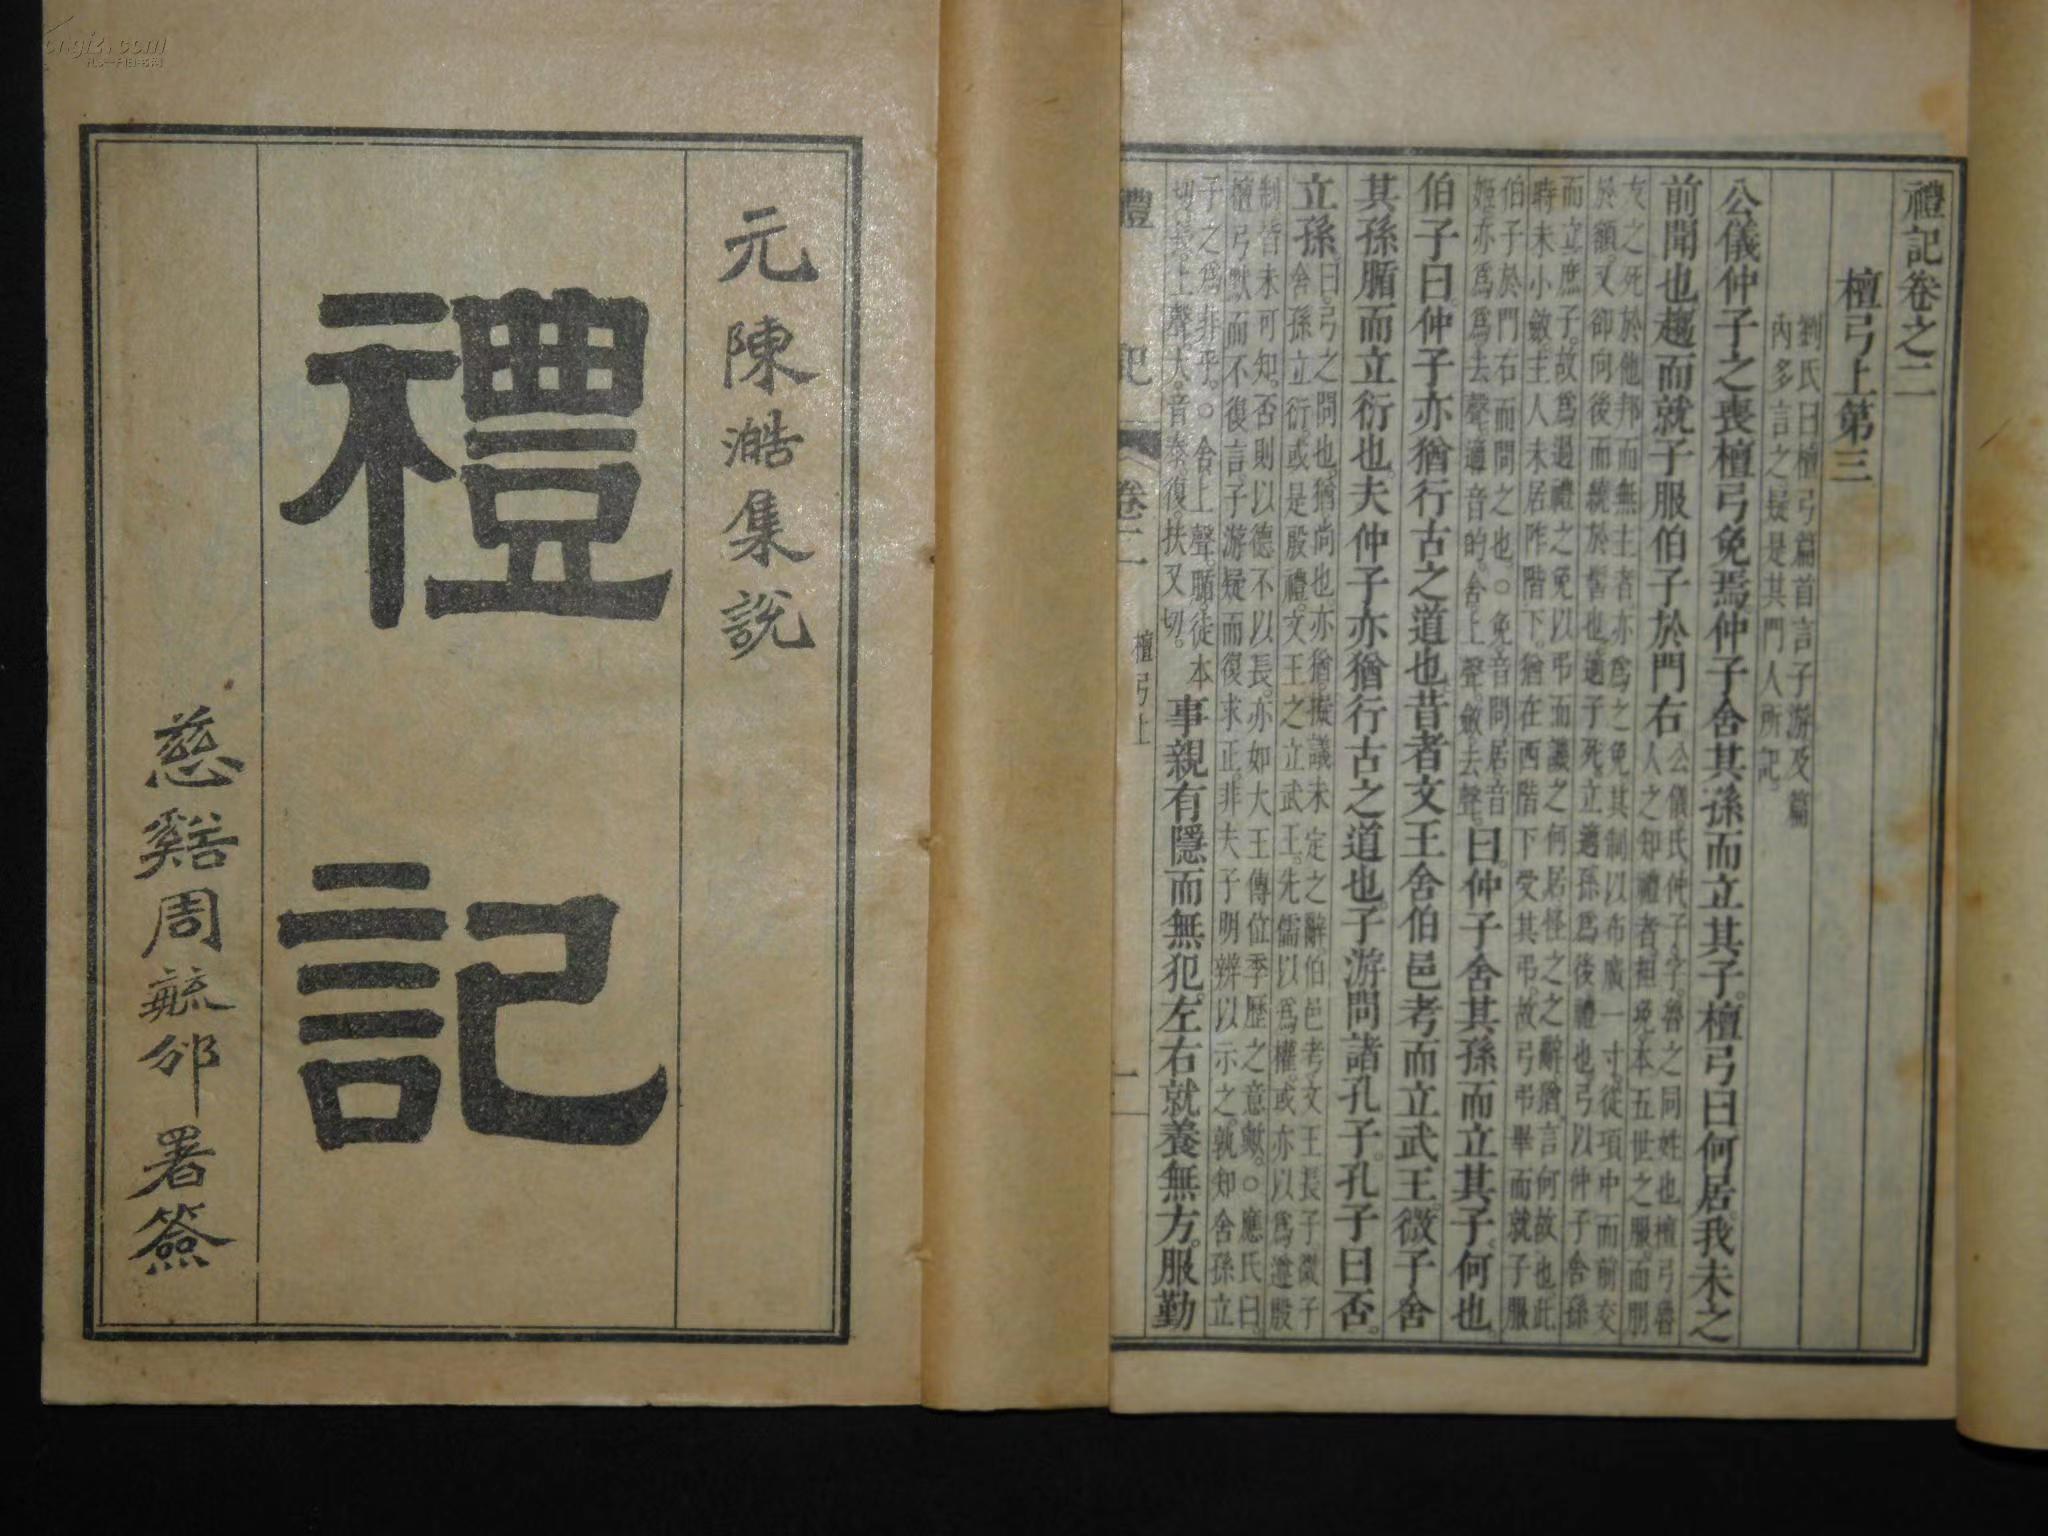 元陳澔集說
禮記
慈谿周毓邠署簽
禮記卷之二
檀弓上第三
劉氏曰檀弓篇首言子游及篇
內多言之疑是其門人所記。
公儀仲子之喪檀弓免焉。仲子舍其孫而立其子。檀弓曰何居。我未之
前聞也。趨而就子服伯子於門右
公儀氏仲子字。魯之同姓也檀弓魯
人之知禮者。袒免本五世之服。而朋
友之死於他邦而無主者。亦爲之免其制以布廣一寸。從項中而前交
於額。又卻向後而繞於髻也。適子死。立適孫爲後禮也弓以仲子舍孫
而立庶子。故爲過禮之免以弔而譏之何居怪之之辭。猶言何故也此
時未小斂。主人未居阼階下。猶在西階下受其弔。故弓弔畢而就子服
伯子於門右而問之也。○免。音問居音
姬。亦爲爲去聲。適音的。舍上聲。斂去聲。
曰。仲子舍其孫而立其子。何也。
伯子曰。仲子亦猶行古之道也昔者文王舍伯邑考而立武王。微子舍
其孫腯而立衍也。夫仲子亦猶行古之道也。子游問諸孔子。孔子曰否。
立孫。
曰。弓之問也。猶尚也亦猶擬議未定之辭伯邑考文王長子微子
舍孫立衍。或是殷禮。文王之立武王。先儒以爲權。或亦以爲遵殷
制皆未可知。否則以德不以長。亦如大王傳位季歷之意歟。○應氏曰。
檀弓默而不復言。子游疑而復求正。非夫子明辨以示之。孰知舍孫立
子之爲非乎。○舍上聲。腯徒本
切。長。上聲大。音泰復。扶又切。
事親有隱而無犯。左右就養無方。服勤
禮記 卷二 檀弓上 一